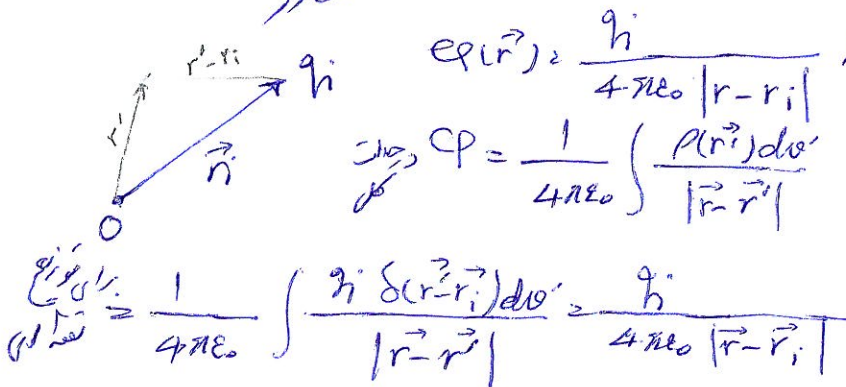 r'-r_i q_i φ(r⃗) = q_i / 4πε₀ |r-r_i|
r'
r⃗_i
O
درحالت کلی φ = 1/4πε₀ ∫ ρ(r⃗')dv' / |r⃗-r⃗'|
برای توزیع نقطه ای = 1/4πε₀ ∫ q_i δ(r⃗'-r⃗_i)dv' / |r⃗-r⃗'| = q_i / 4πε₀ |r⃗-r⃗_i|